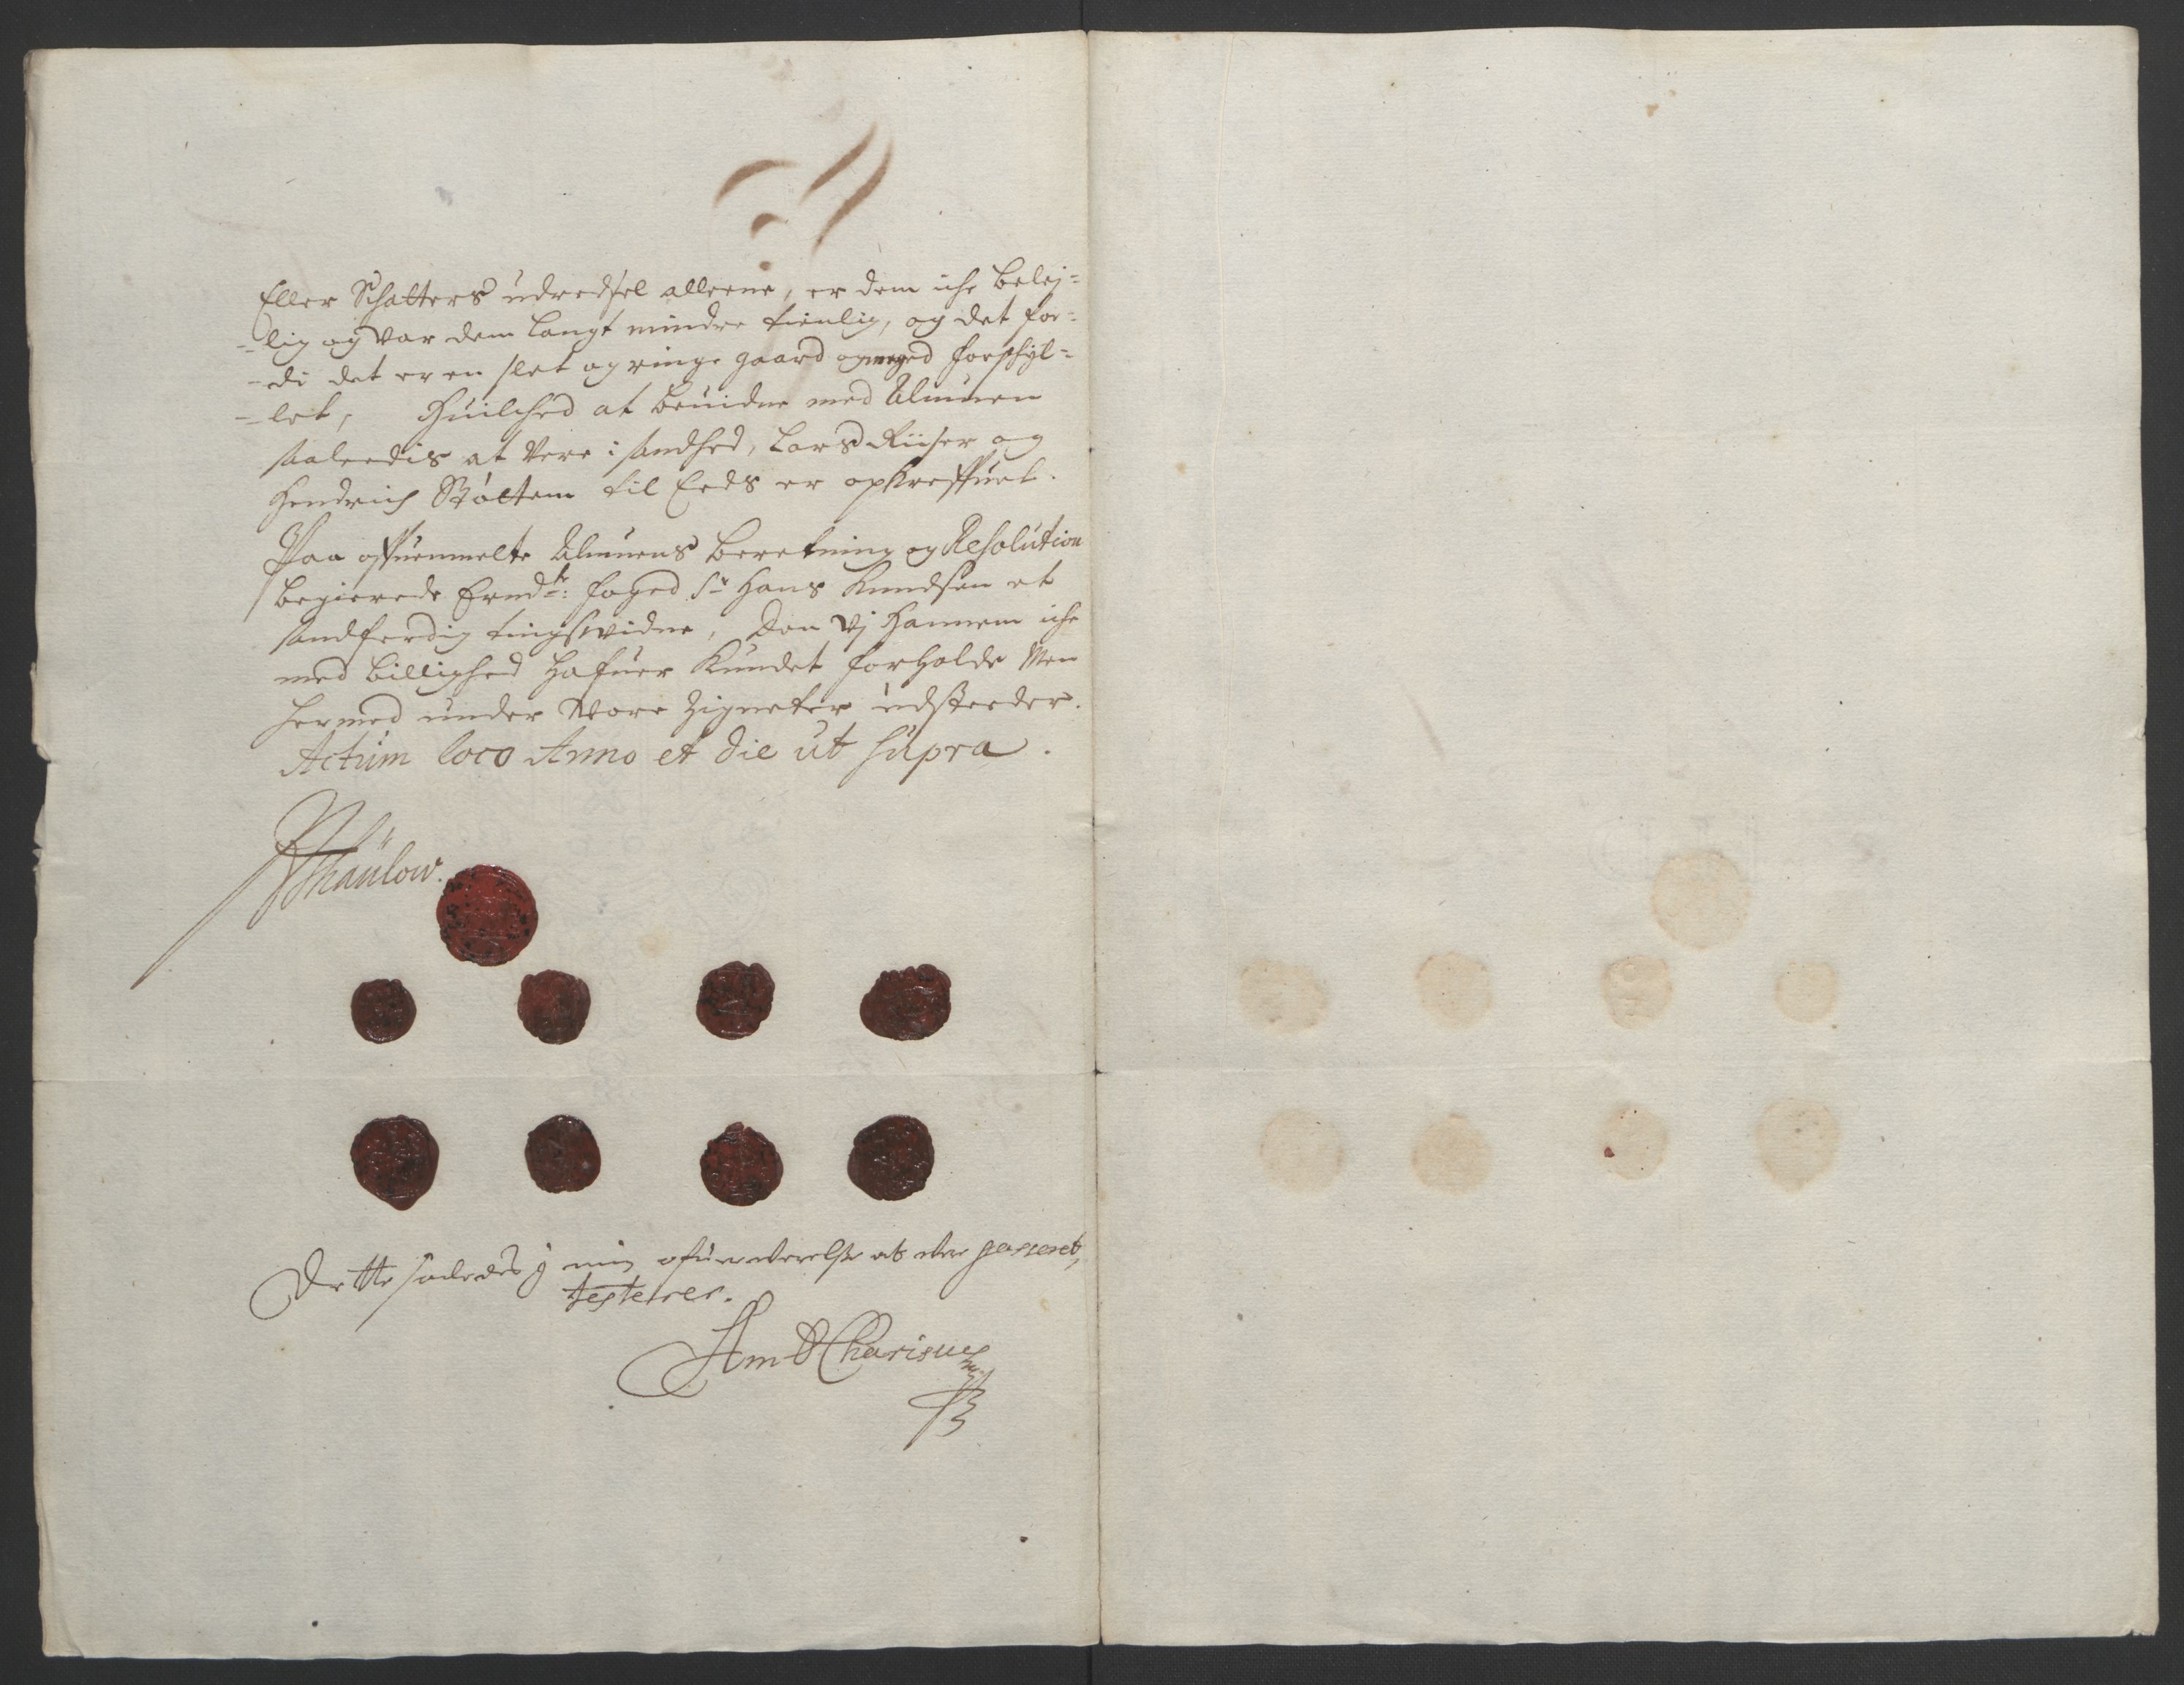 Eller Schatters udredsel alleene, er dem iche beley=
=lig og var dem langt mindre tienlig, og det for=
=di det er en slet og ringe gaard og meged forschyl=
=let, Huilched at beuidne med Almuen
saaleedis at vere i sandhed, Lars Riiser og
Hendrich Stoltem til Eeds er opkreffuet.
Paa offuenmelte Almuens beretning og Resolution
begierede Ermdte: foged Sr Hans Knudsen et
sandferdig tingsvidne, Den vj Hannem iche
med billighed hafuer Kundet forholde Men
hermed under Vore Zigneter udsteeder.
Actum loco Anno et die ut supra.
Thaulow.
Dette saaledes j min ofuerverelse at vere passeret,
testerer.
Am Charisius